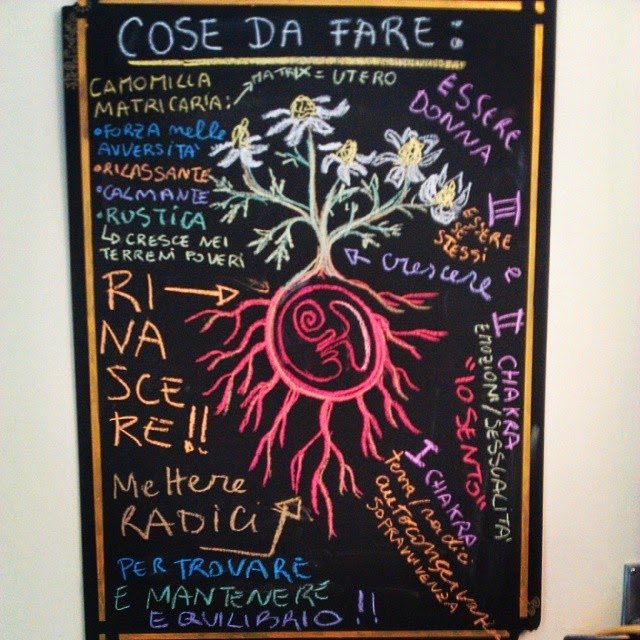 COSE DA FARE:
CAMOMILLA
MATRICARIA:
MATRIX = UTERO
• FORZA nelle
AVVERSITA'
• RILASSANTE
• CALMANTE
• RUSTICA
CRESCE NEI
TERRENI POVERI
ESSERE
DONNA
III e II CHAKRA
ESSERE
SE
STESSI
crescere
RI
NA
SCE
RE!!
EMOZIONI/SESSUALITA'
"IO SENTO"
I CHAKRA
terra/radici
autoconservazione
SOPRAVVIVENZA
Mettere
RADICI
PER TROVARE
E MANTENERE
EQUILIBRIO!!